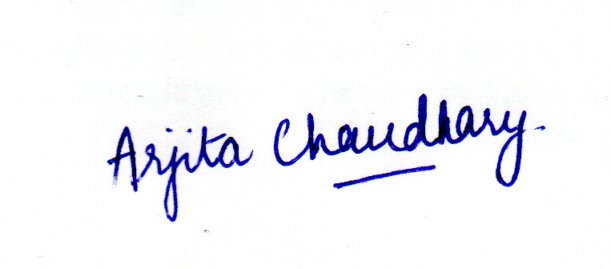 Arjita Chaudhary.